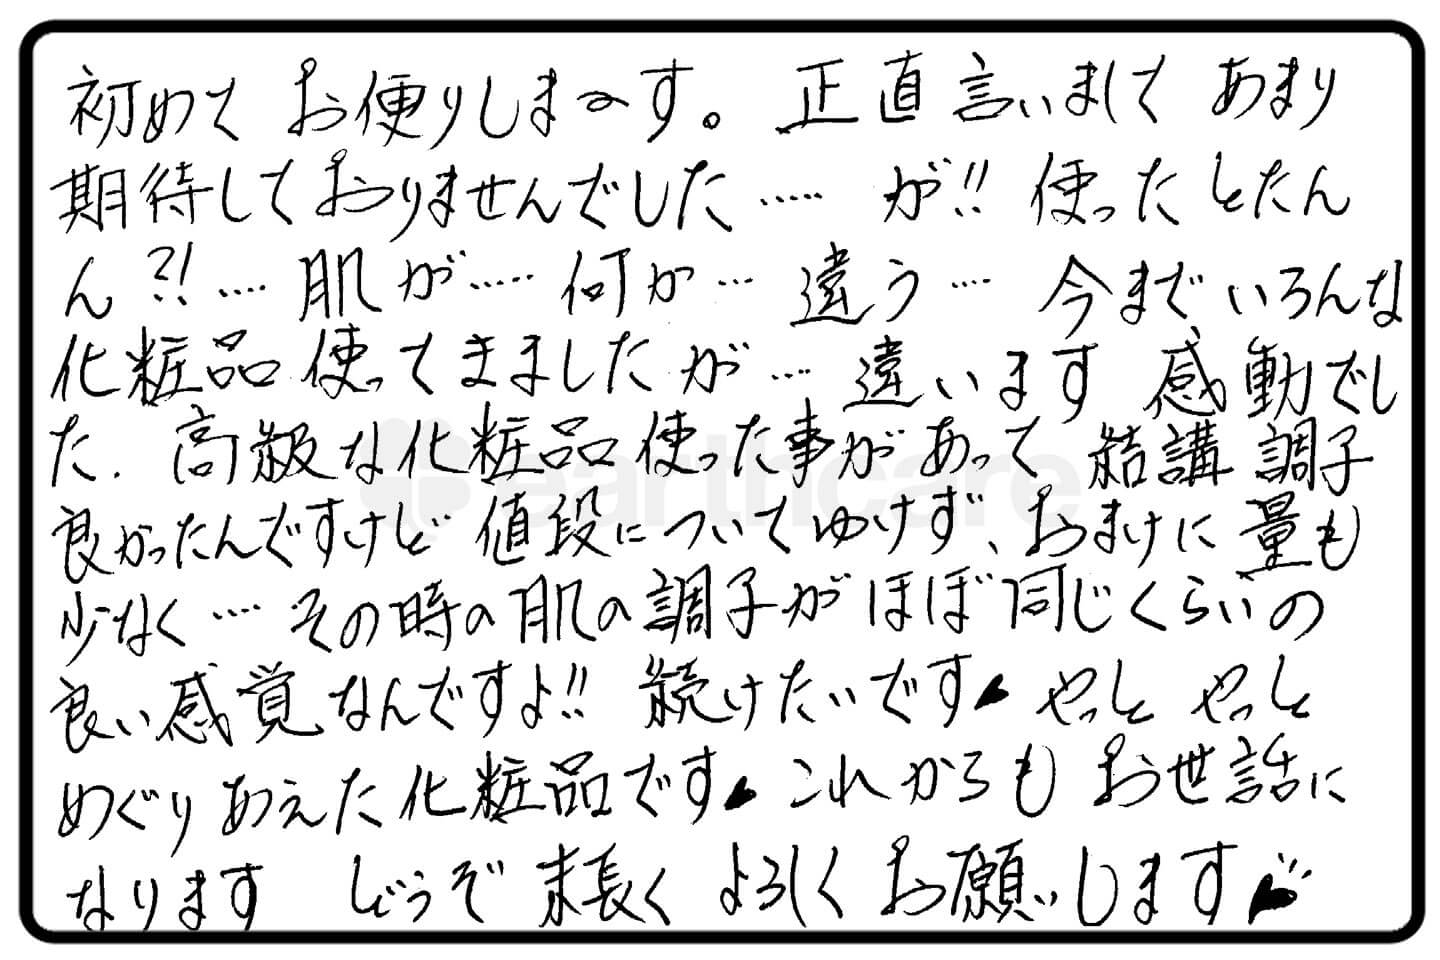 初めて お便りしま〜す。 正直言いまして あまり
期待しておりませんでした……が!! 使ったとたん
ん?!…. 肌が……何か… 違う… 今までいろんな
化粧品使ってきましたが… 違います 感動でし
た. 高級な化粧品使った事があって 結講 調子
良かったんですけど 値段についてゆけず、おまけに量も
少なく…. その時の肌の調子がほぼ同じくらいの
良い感覚なんですよ!! 続けたいです♥ やっと やっと
めぐりあえた化粧品です♥ これからも お世話に
なります どうぞ 末長く よろしく お願いします♥
earthcare